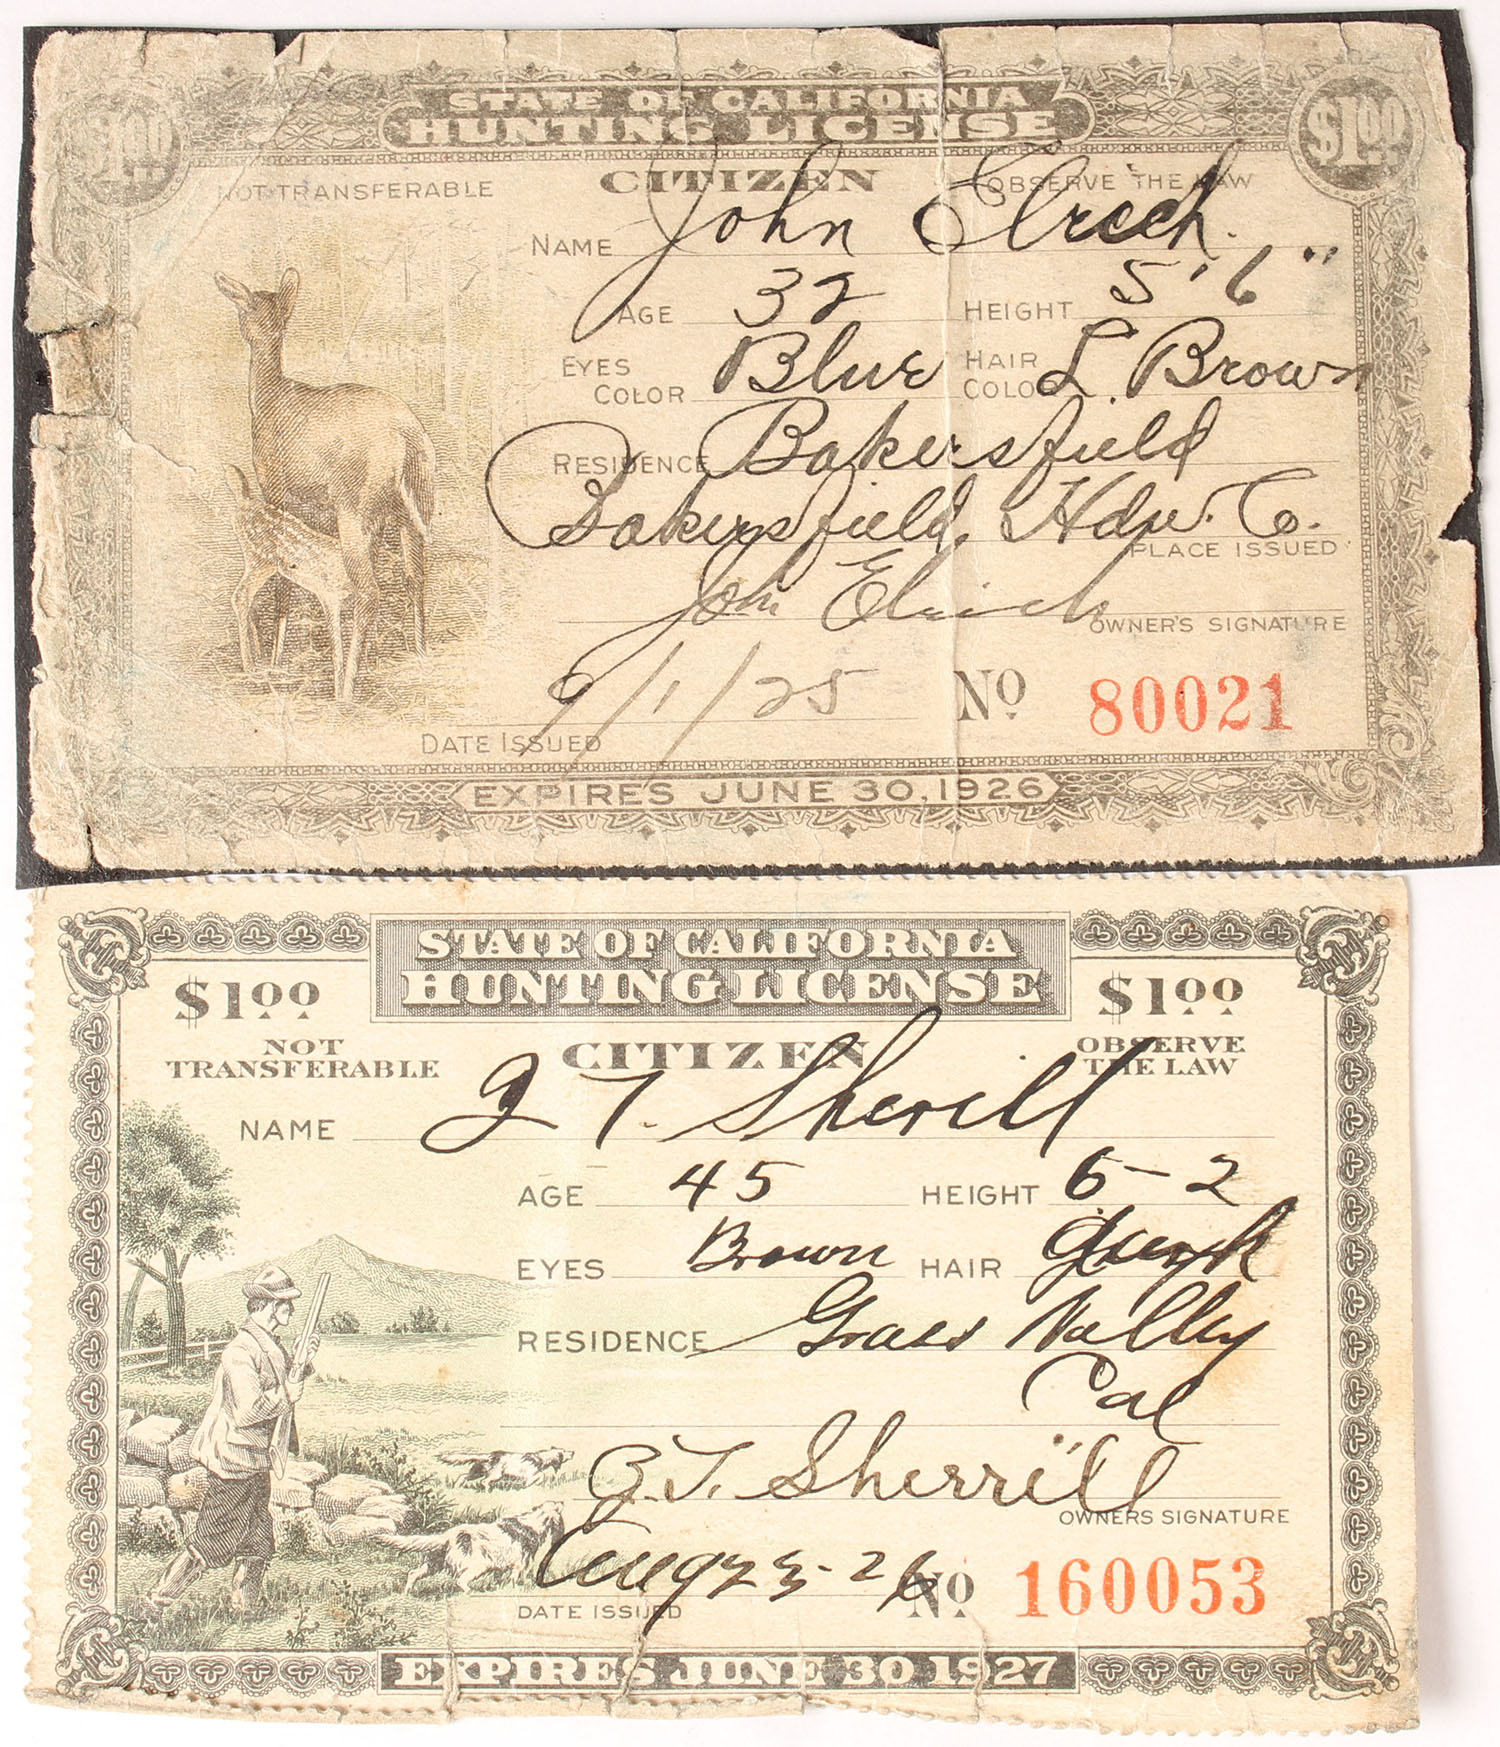 STATE OF CALIFORNIA
HUNTING LICENSE
$1.00 $1.00
NOT TRANSFERABLE CITIZEN OBSERVE THE LAW
NAME John
AGE 32 HEIGHT 5'6"
EYES COLOR Blue HAIR COLOR L Brown
RESIDENCE Bakersfield
Bakersfield Hdw. Co.
PLACE ISSUED
John
OWNER'S SIGNATURE
9/1/25 No 80021
DATE ISSUED
EXPIRES JUNE 30, 1926
STATE OF CALIFORNIA
HUNTING LICENSE
$1.00 $1.00
NOT TRANSFERABLE CITIZEN OBSERVE THE LAW
NAME T. Sherill
AGE 45 HEIGHT 6-2
EYES Brown HAIR
RESIDENCE Grass Valley
Cal
T. Sherrill
OWNERS SIGNATURE
Aug 23-26 No 160053
DATE ISSUED
EXPIRES JUNE 30 1927